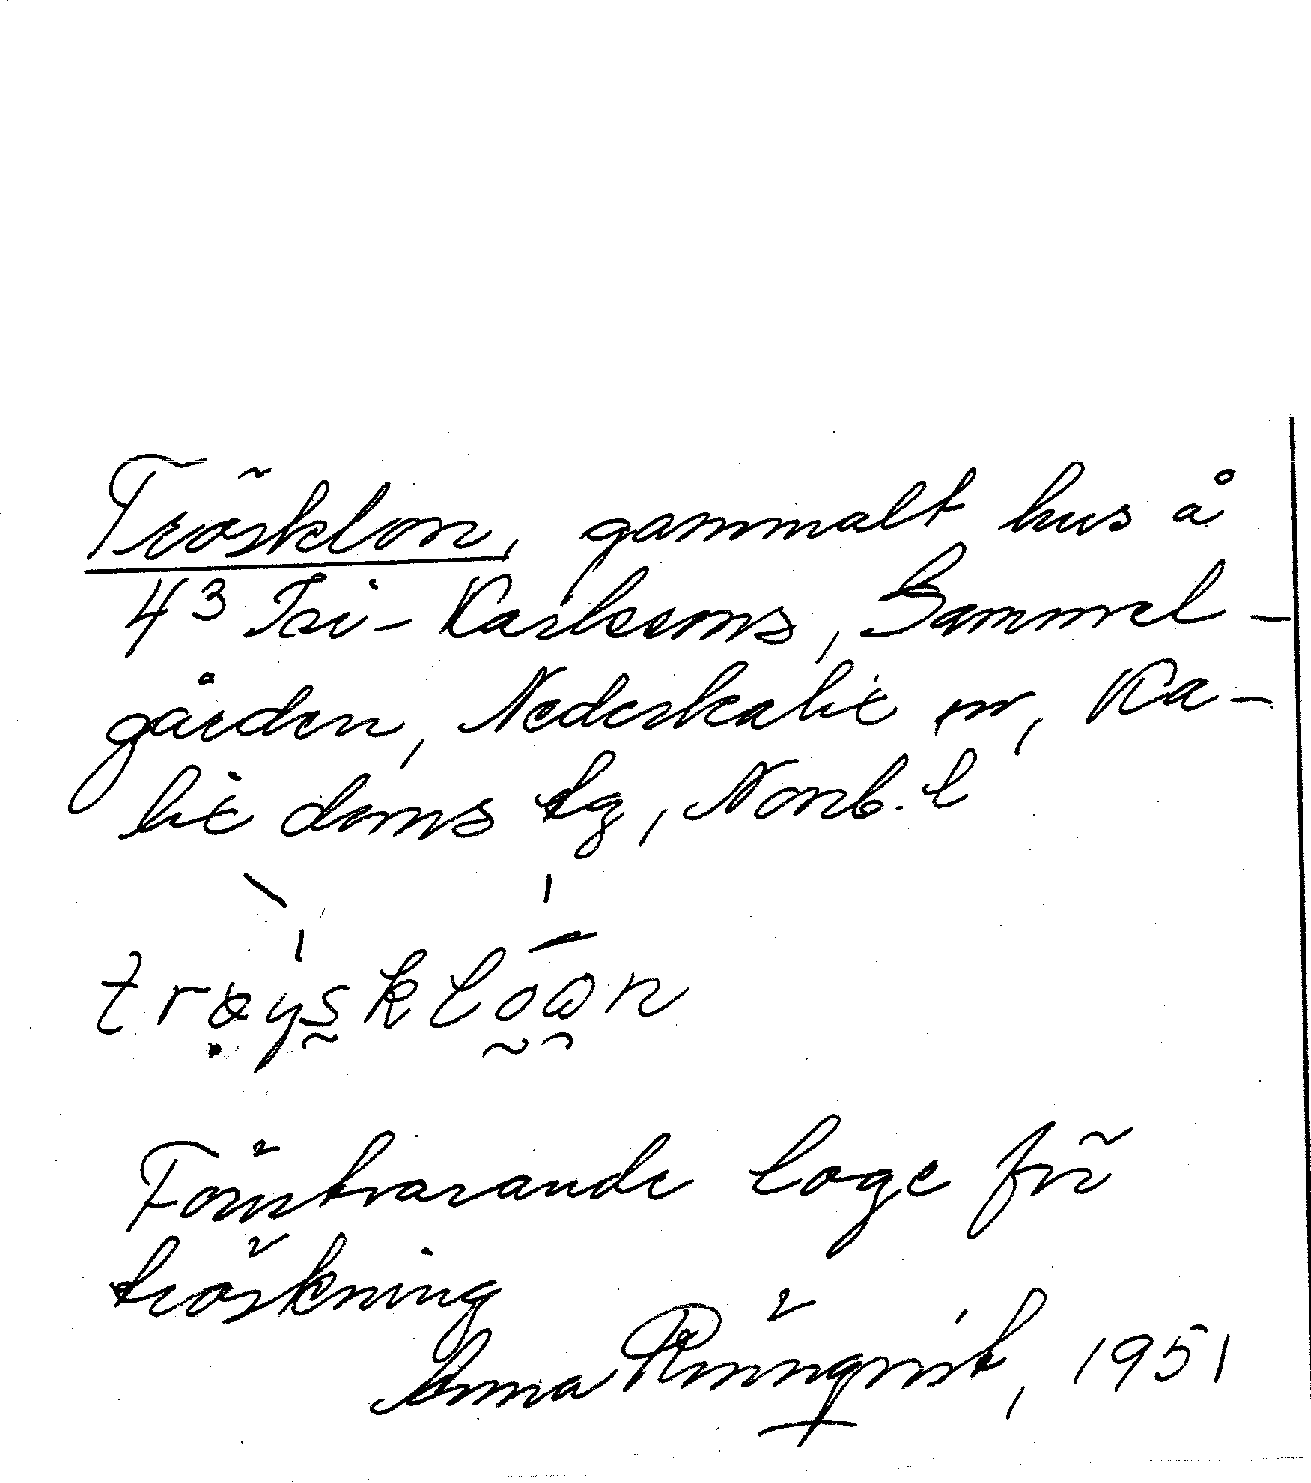 Trösklon, gammalt hus å
4³ Isi-Karlssons, Gammel-
gården, Nederkalix sn, Ka-
lix doms tg, Norrb. l
trøysklóan
Förutvarande loge för
tröskning
Anna Rönnqvist, 1951